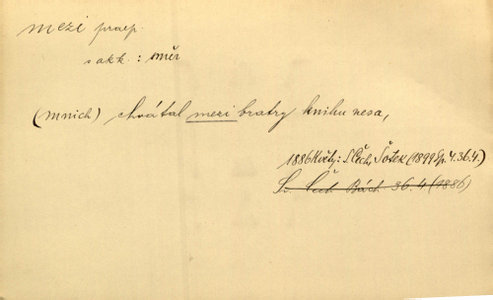 mezi praep.
s akk. : směr
(mnich) chvátal mezi bratry knihu nesa,
1886 Květy: S. Čech, Šotek (1899 Sp. 4. 36. 4.)
Sv. Čech Bách. 36. 4 (1886)